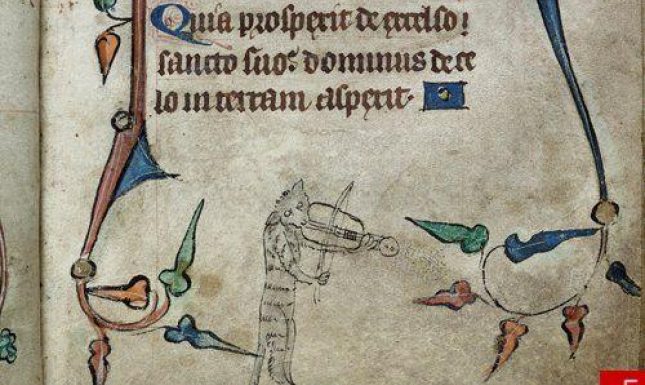 Quia prospexit de excelso
sancto suo: dominus de ce
lo in terram aspexit.